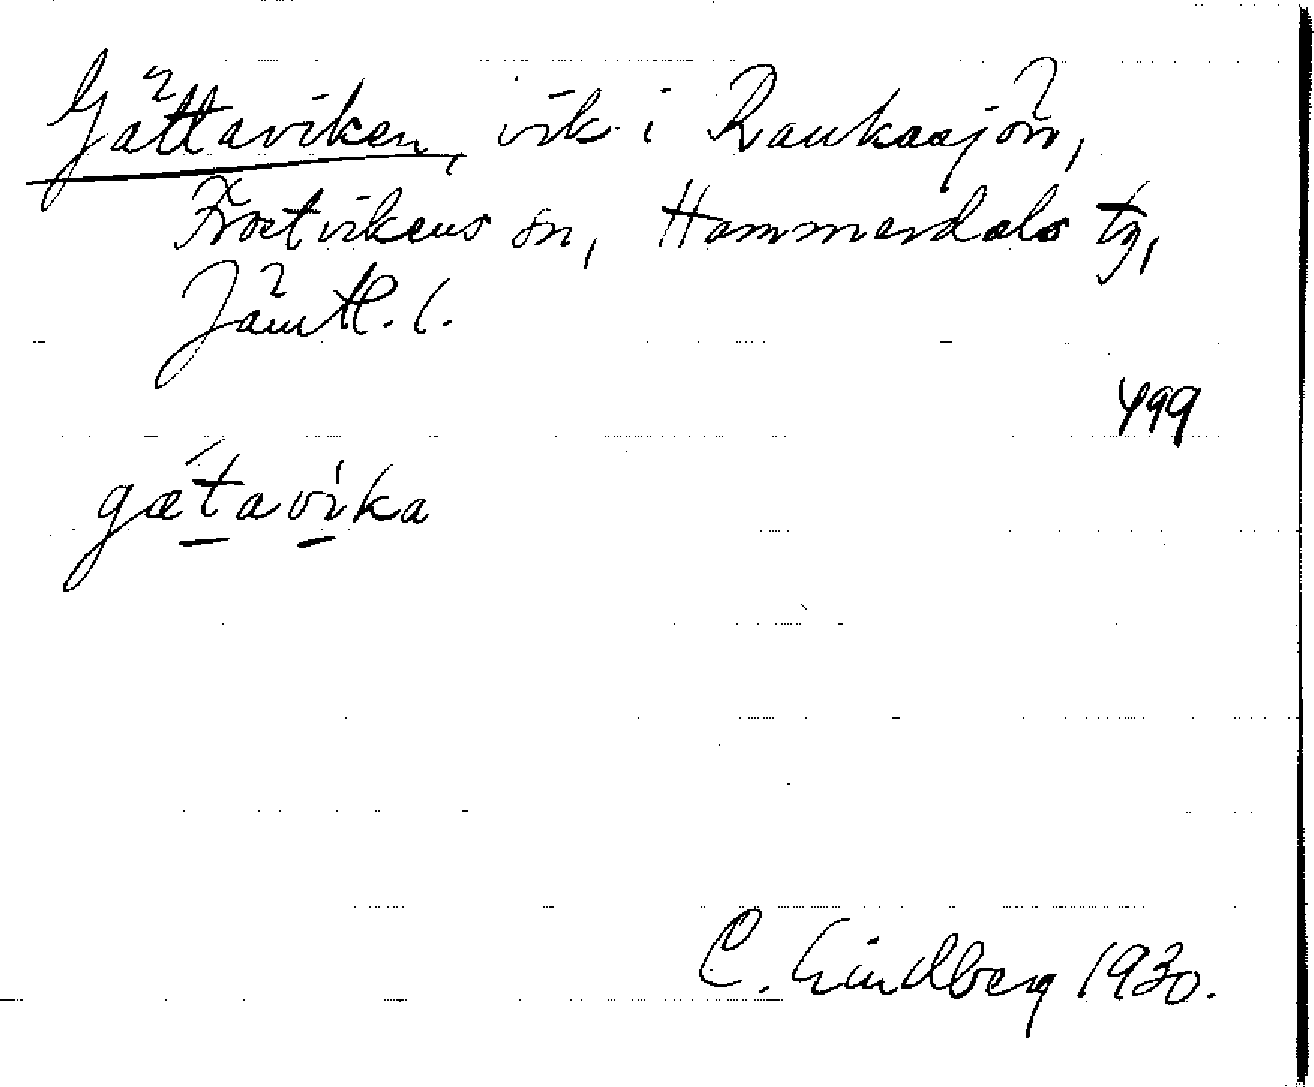 Gättaviken, vik i Raukasjön,
Frostvikens sn, Hammerdals tg,
Jämtl. l.
499
gætavika
C. Lindberg 1930.